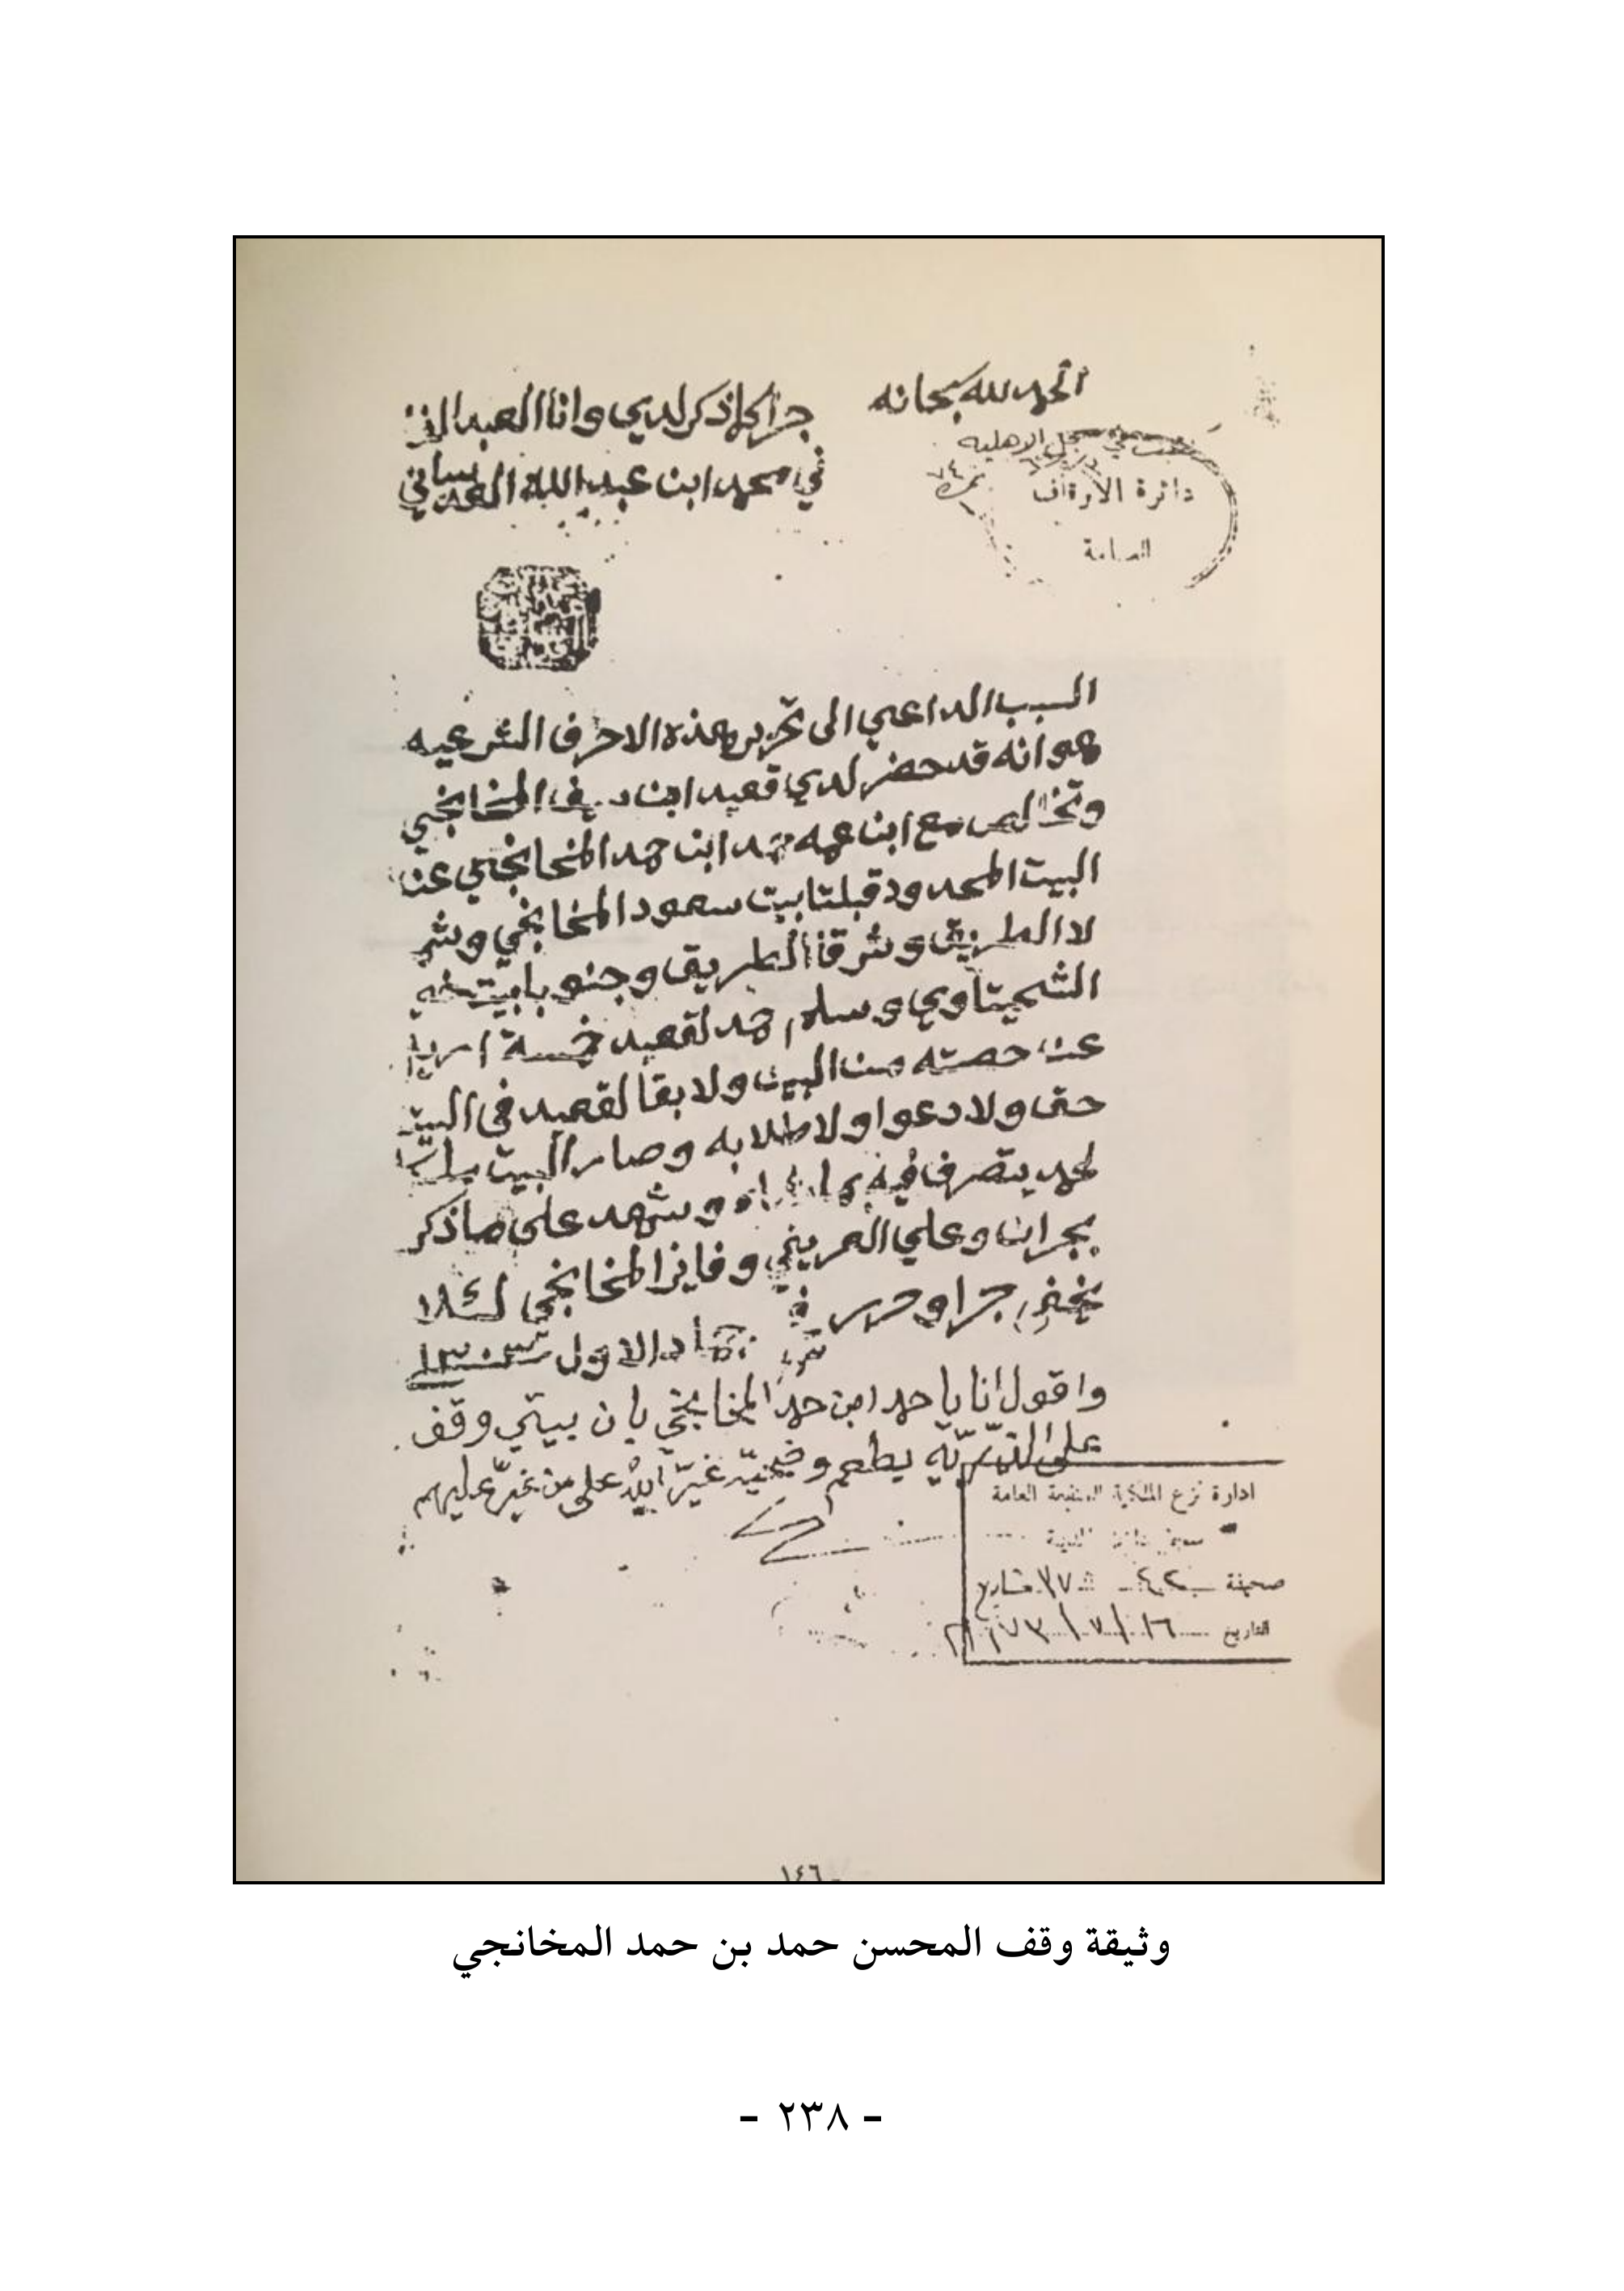 الحمد لله سبحانه
جرا كما ذكر لدي وانا العبد الفا
ني محمد ابن عبد الله العدساني
في سجل الاهليه
نمرة ٧٤
دائرة الاوقاف
العامة
السبب الداعي الى تحرير هذه الاحرف الشرعيه
هو انه قد حضر لدي قعيد ابن المخانجي
وتخالص مع ابن عمه حمد ابن حمد المخانجي عن
البيت المحدود قبلتا بيت سعود المخانجي وشم
لا الطريق وشرقا الطريق وجنوبا بيت
الشميتاوي وسلم حمد لقعيد خمسة اريا
عن حصته من البيت ولا بقا لقعيد في البيت
حق ولا دعوا ولا طلابه وصار البيت ملكا
لحمد يتصرف فيه بما وشهد على ما ذكر
بجران وعلي العريني وفايز المخانجي لئلا
يخفى جرا وحرر في
جماد الاول ١٣٠٣
واقول انا يا حمد ابن حمد المخانجي بان بيتي وقف
على الذريه يطعم وضحيه غير الله على من غير عليهم
ادارة نزع الملكية للمنفعة العامة
صحيفة ٤٢
التاريخ ١٦/٧/
١٤٦
وثيقة وقف المحسن حمد بن حمد المخانجي
- ٢٣٨ -